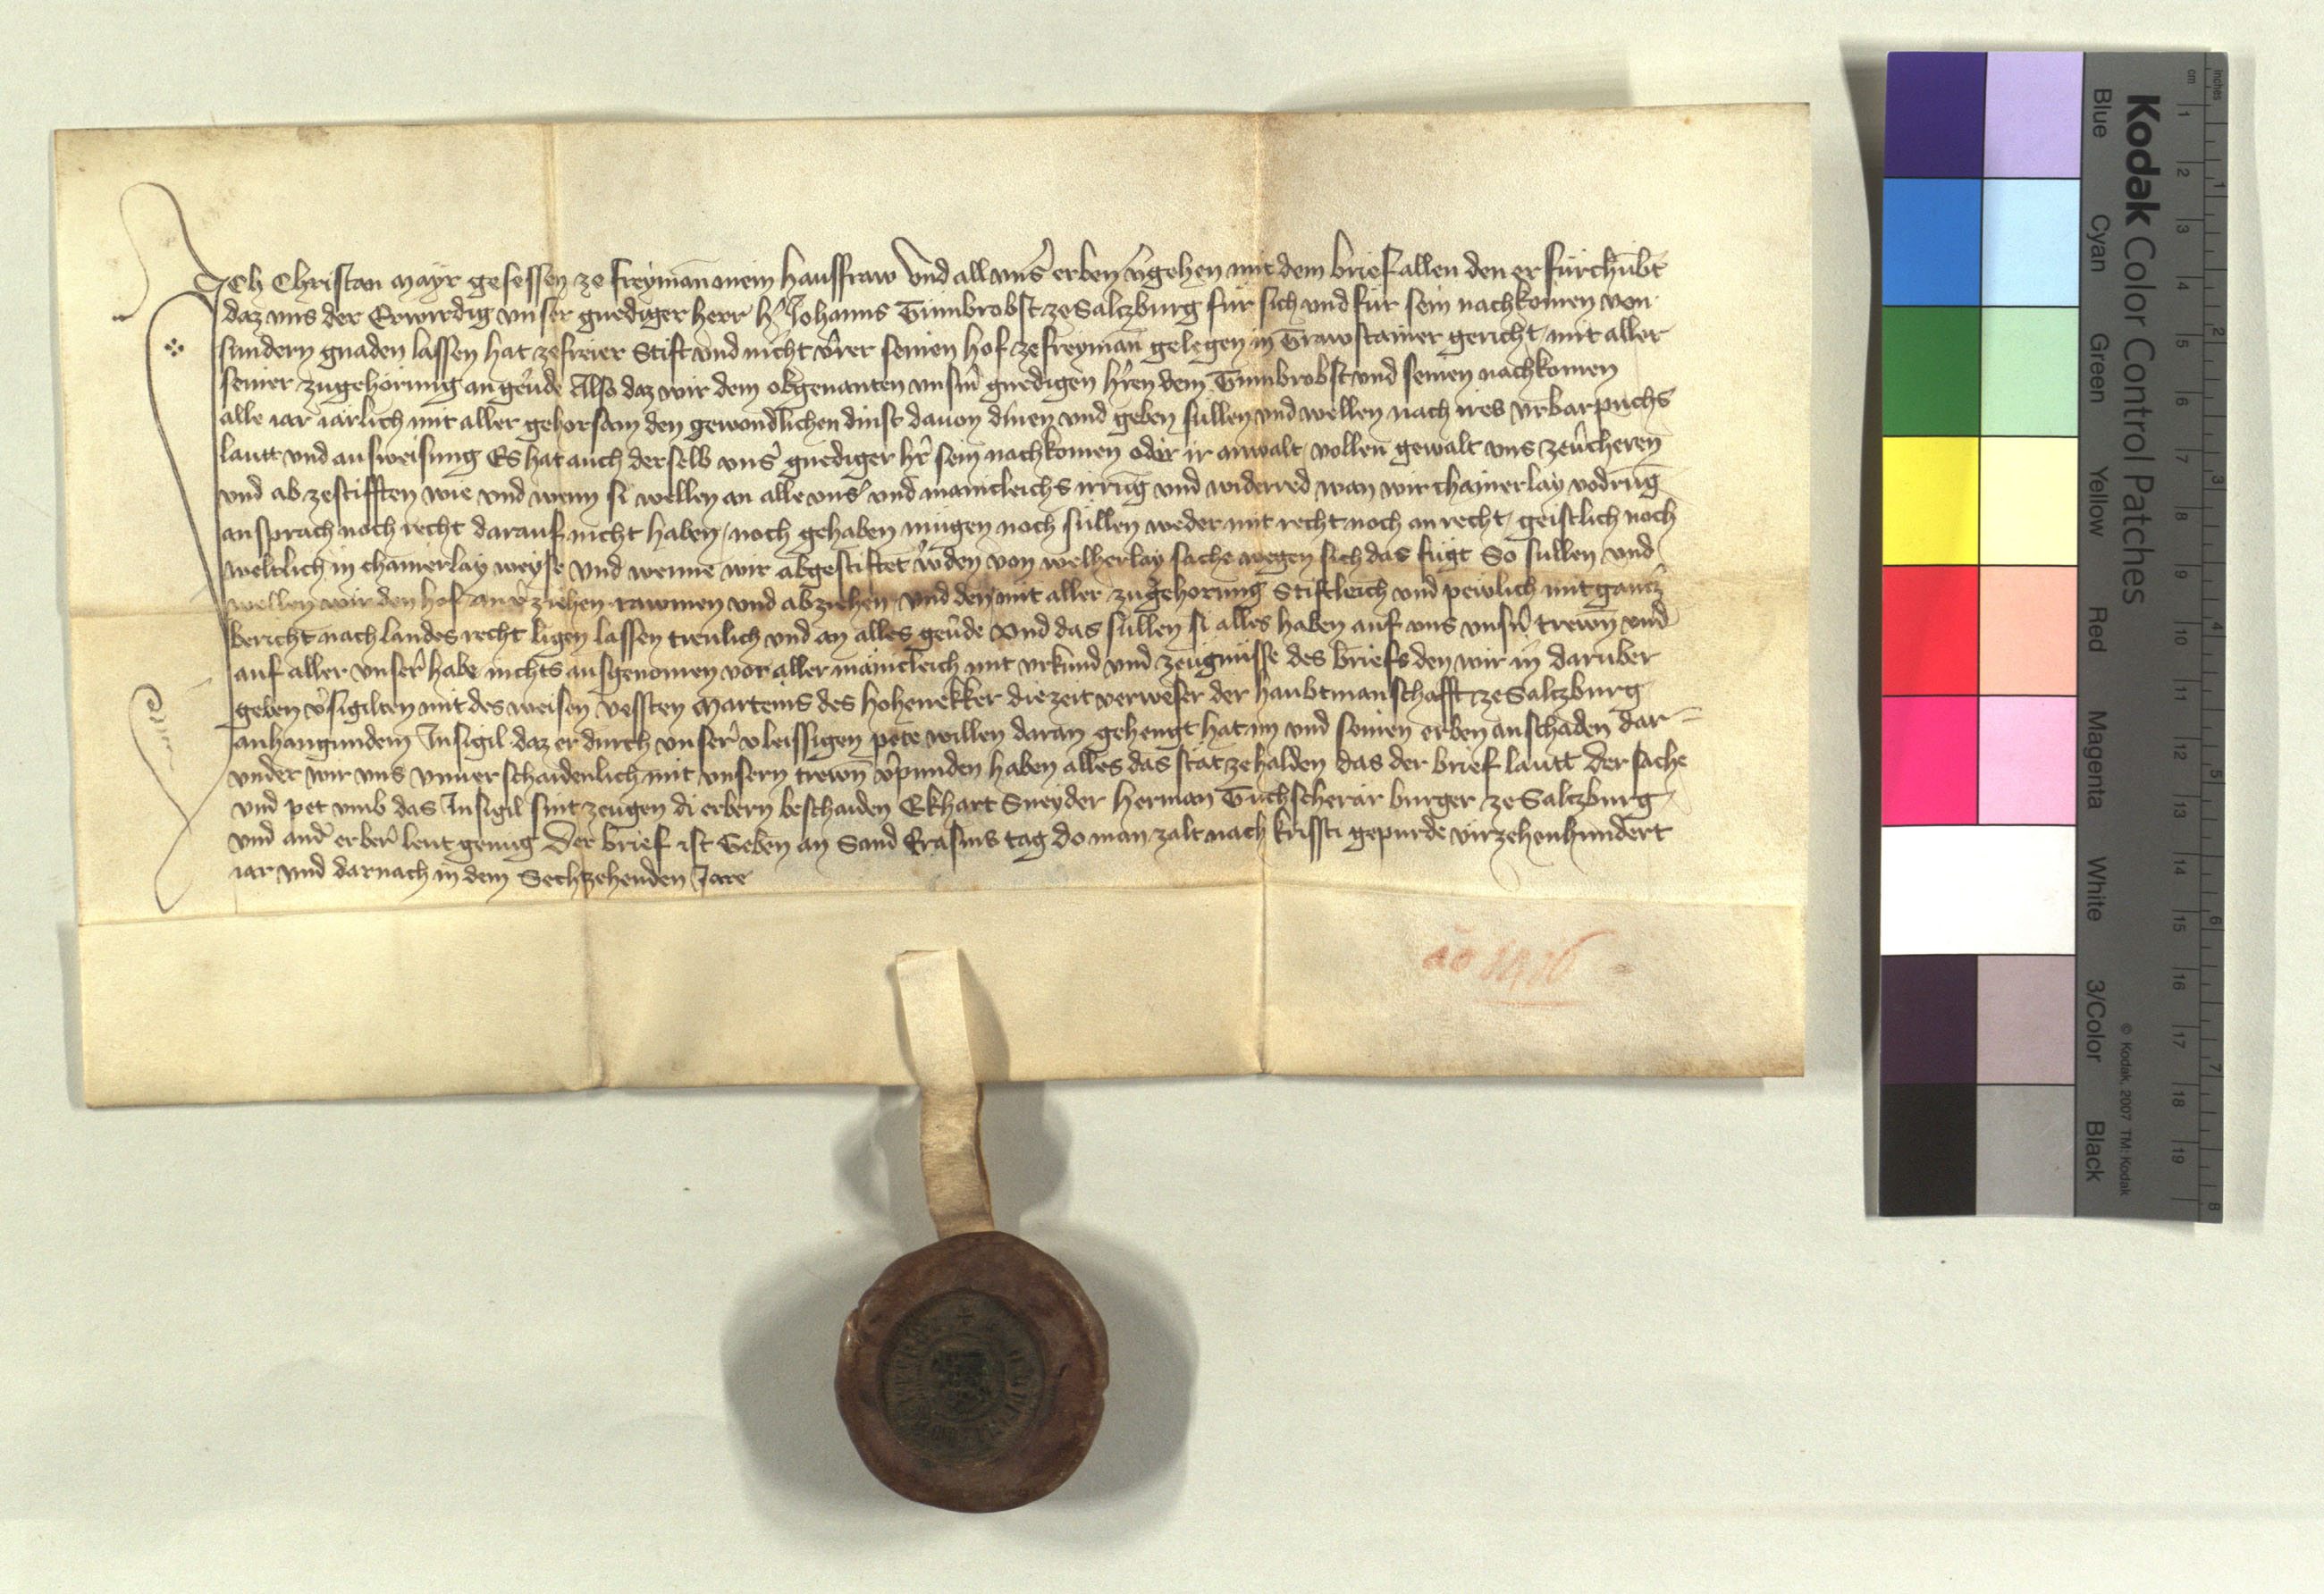 Ich Christan Mayr gesessen ze freyman mein hausfraw Und all unser erben v̾gehen mit dem brief allen den er fürchübt
daz uns der Erwirdig unser gnediger herr h̾ Johanns Tumbrobst ze Salczburg für sich und für sein nachkomen von
sundern gnaden lassen hat ze freier Stift und nicht v̾rer seinen hof ze freyman gelegen in Trawstainer gericht mit aller
seiner zugehörung an ge̾ude Also daz wir dem obgenanten unsm̾ gnedigen hr̾en dem Tumbrobst und seinen nachkomen
alle iar iärlich mit aller gehorsam den gewondlichen dinst dauon dinen und geben süllen und wellen nach irs urbarpuchs
lautt und ausweisung Es hat auch derselb uns̾ gnediger hr̾ sein nachkomen oder ir anwalt vollen gewalt uns
und ab zestifften wie und wenn si wellen an alle uns̾ und mäincleichs irrūg und widerred wan wir chainerlay vodrūg
ansprach noch recht darauf nicht haben noch gehaben mügen noch süllen weder mit recht noch an recht geistlich noch
weltlich in chainerlay weyse und wenne wir abgestiftet w̾den von welherlay sache wegen sich das fügt So sullen und
wellen wir den hof an v̾ziehen rawmen und abziehen und den mit aller zugehorung Stiftleich und pewlich mit gancz̾
bericht nach landes recht ligen lassen trewlich und an alles geu̾de Und das süllen si alles haben auf uns unsn̾ trewn̄ und
auf aller unser̾ habe nichts ausgenomen vor aller mäincleich mit urkund und zeugnüsse des briefs den wir in darüber
geben v̾sigilten mit des weisen vessten Marteins des Hohenekker die zeit verweser der haubtmanschafft ze Salczburg
anhangundem Insigil daz er durch unser̾ vleissigen pete willen daran gehengt hat im und seinen erben an schaden dar=
under wir uns unuerschaidenlich mit unsern trewn̄ v̾punden haben alles das stät zehalden das der brief lautt Der sache
und pet umb das Insigil sint zeugen di erbern beschaiden Ekhart Sneyder Herman Tuchscherär burger ze Salczburg
und and̾ erber̾ leut genug Der brief ist Geben an Sand Erasms tag do man zalt nach kristi gepurde virzehenhundert
iar und darnach in dem Sechzehenden Jare
ao 1416
Kodak Color Control Patches
Blue Cyan Green Yellow Red Magenta White 3/Color Black
© Kodak, 2007 TM: Kodak
cm 1 2 3 4 5 6 7 8 9 10 11 12 13 14 15 16 17 18 19
inches 1 2 3 4 5 6 7 8